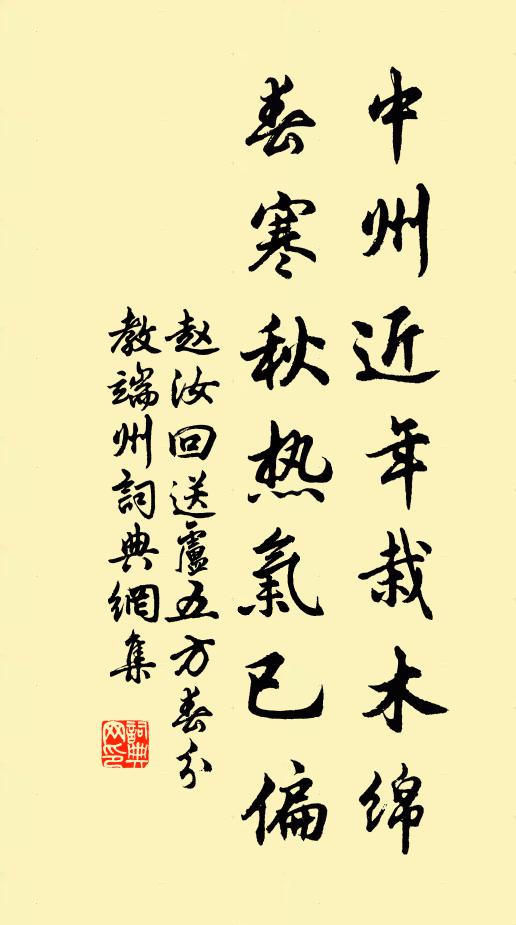 中州近年栽木绵
春寒秋热氣已偏
赵汝回送盧五方春分
教端州詞典網集
詞典網印